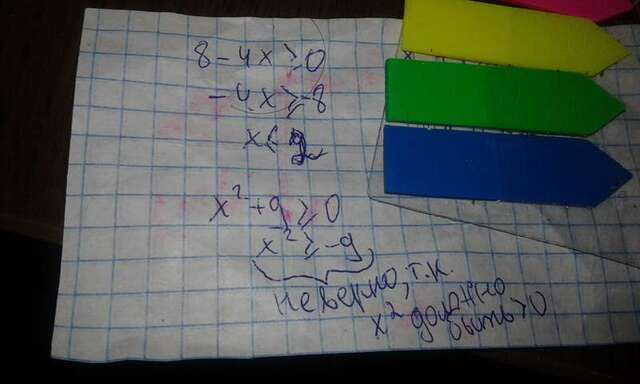 8 - 4x ≥ 0
- 4x ≥ -8
x ≤ 2
x² + 9 ≥ 0
x² ≥ -9
неверно, т.к.
x² должно
быть > 0